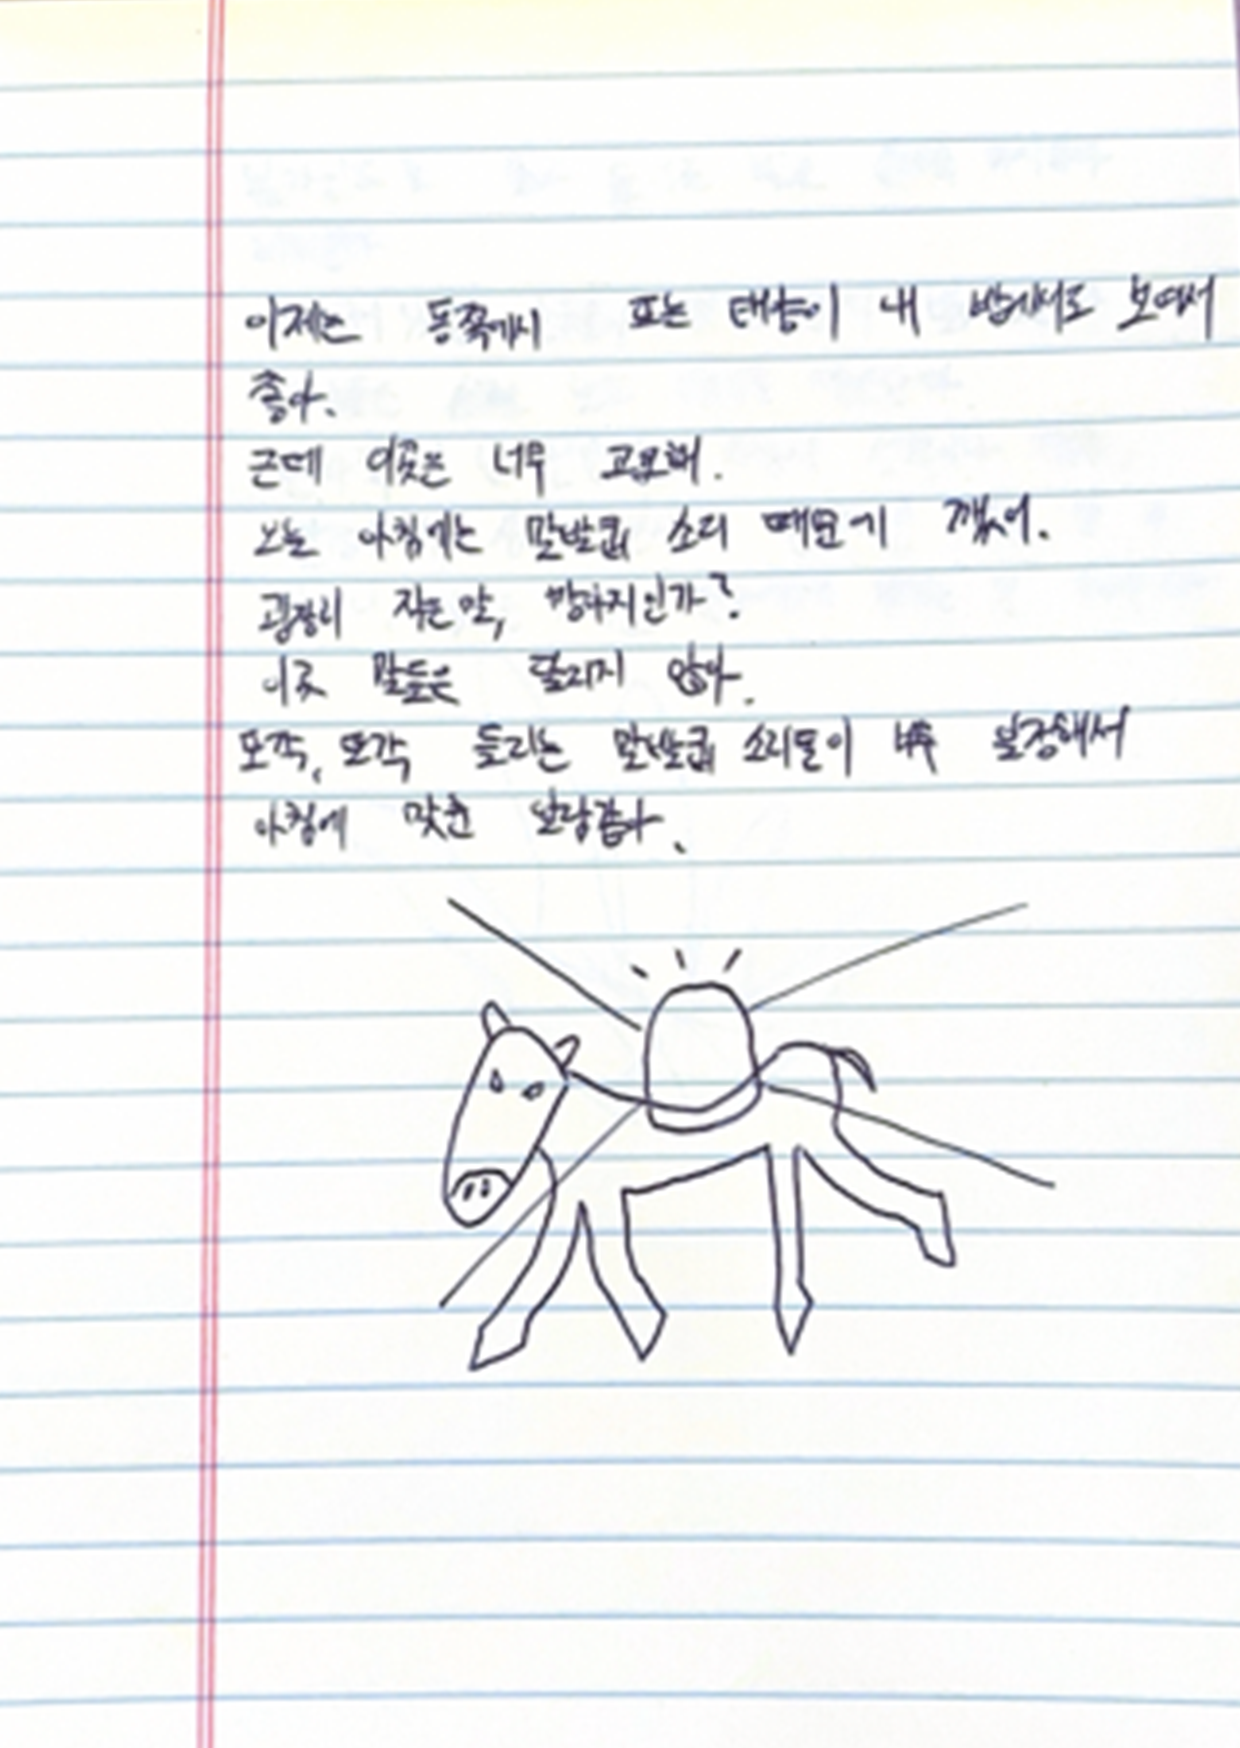 이제는 동쪽에서 뜨는 태양이 내 방에서도 보여서
좋아.
근데 이곳은 너무 고요해.
오늘 아침에는 말발굽 소리 때문에 깼어.
굉장히 작은 말, 망아지인가?
이곳 말들은 달리지 않아.
또각, 또각 들리는 말발굽 소리들이 너무 일정해서
아침에 맞춘 알람같아.